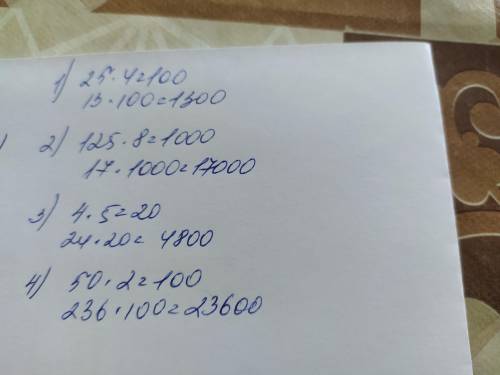 1) 25·4=100
13·100=1300
2) 125·8=1000
17·1000=17000
3) 4·5=20
24·20=4800
4) 50·2=100
236·100=23600